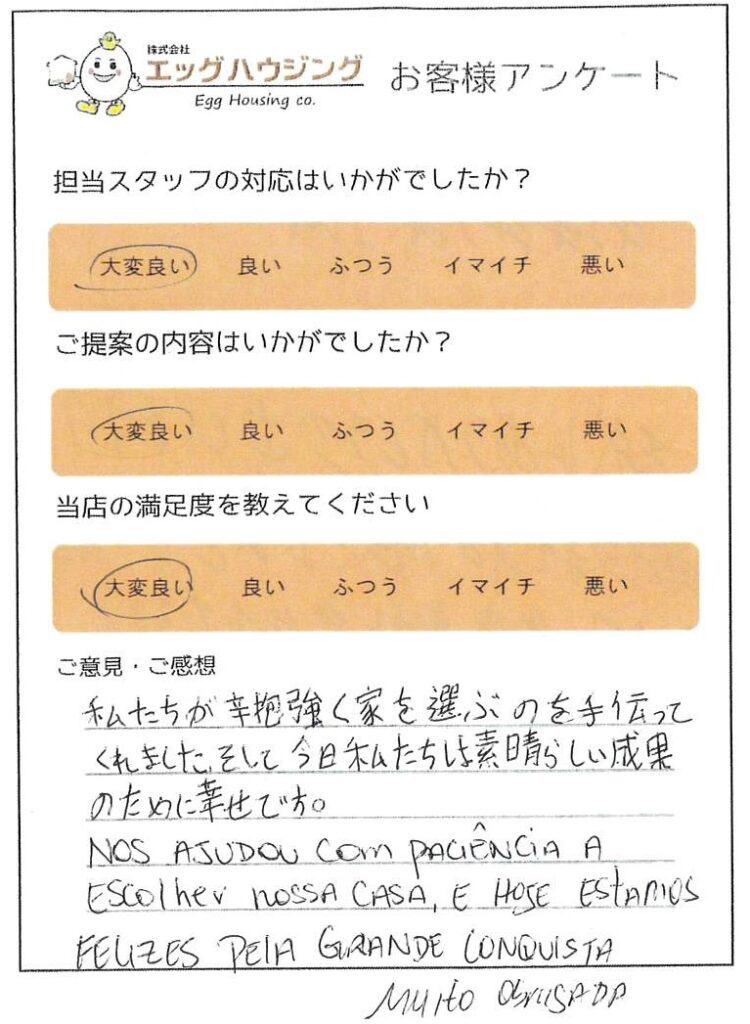 株式会社
エッグハウジング
Egg Housing co.
お客様アンケート
担当スタッフの対応はいかがでしたか？
大変良い 良い ふつう イマイチ 悪い
ご提案の内容はいかがでしたか？
大変良い 良い ふつう イマイチ 悪い
当店の満足度を教えてください
大変良い 良い ふつう イマイチ 悪い
ご意見・ご感想
私たちが辛抱強く家を選ぶのを手伝って
くれました、そして今日私たちは素晴らしい成果
のために幸せです。
NOS AJUDOU COM PACIÊNCIA A
ESCOLHER NOSSA CASA, E HOJE ESTAMOS
FELIZES PELA GRANDE CONQUISTA
MUITO OBRIGADA